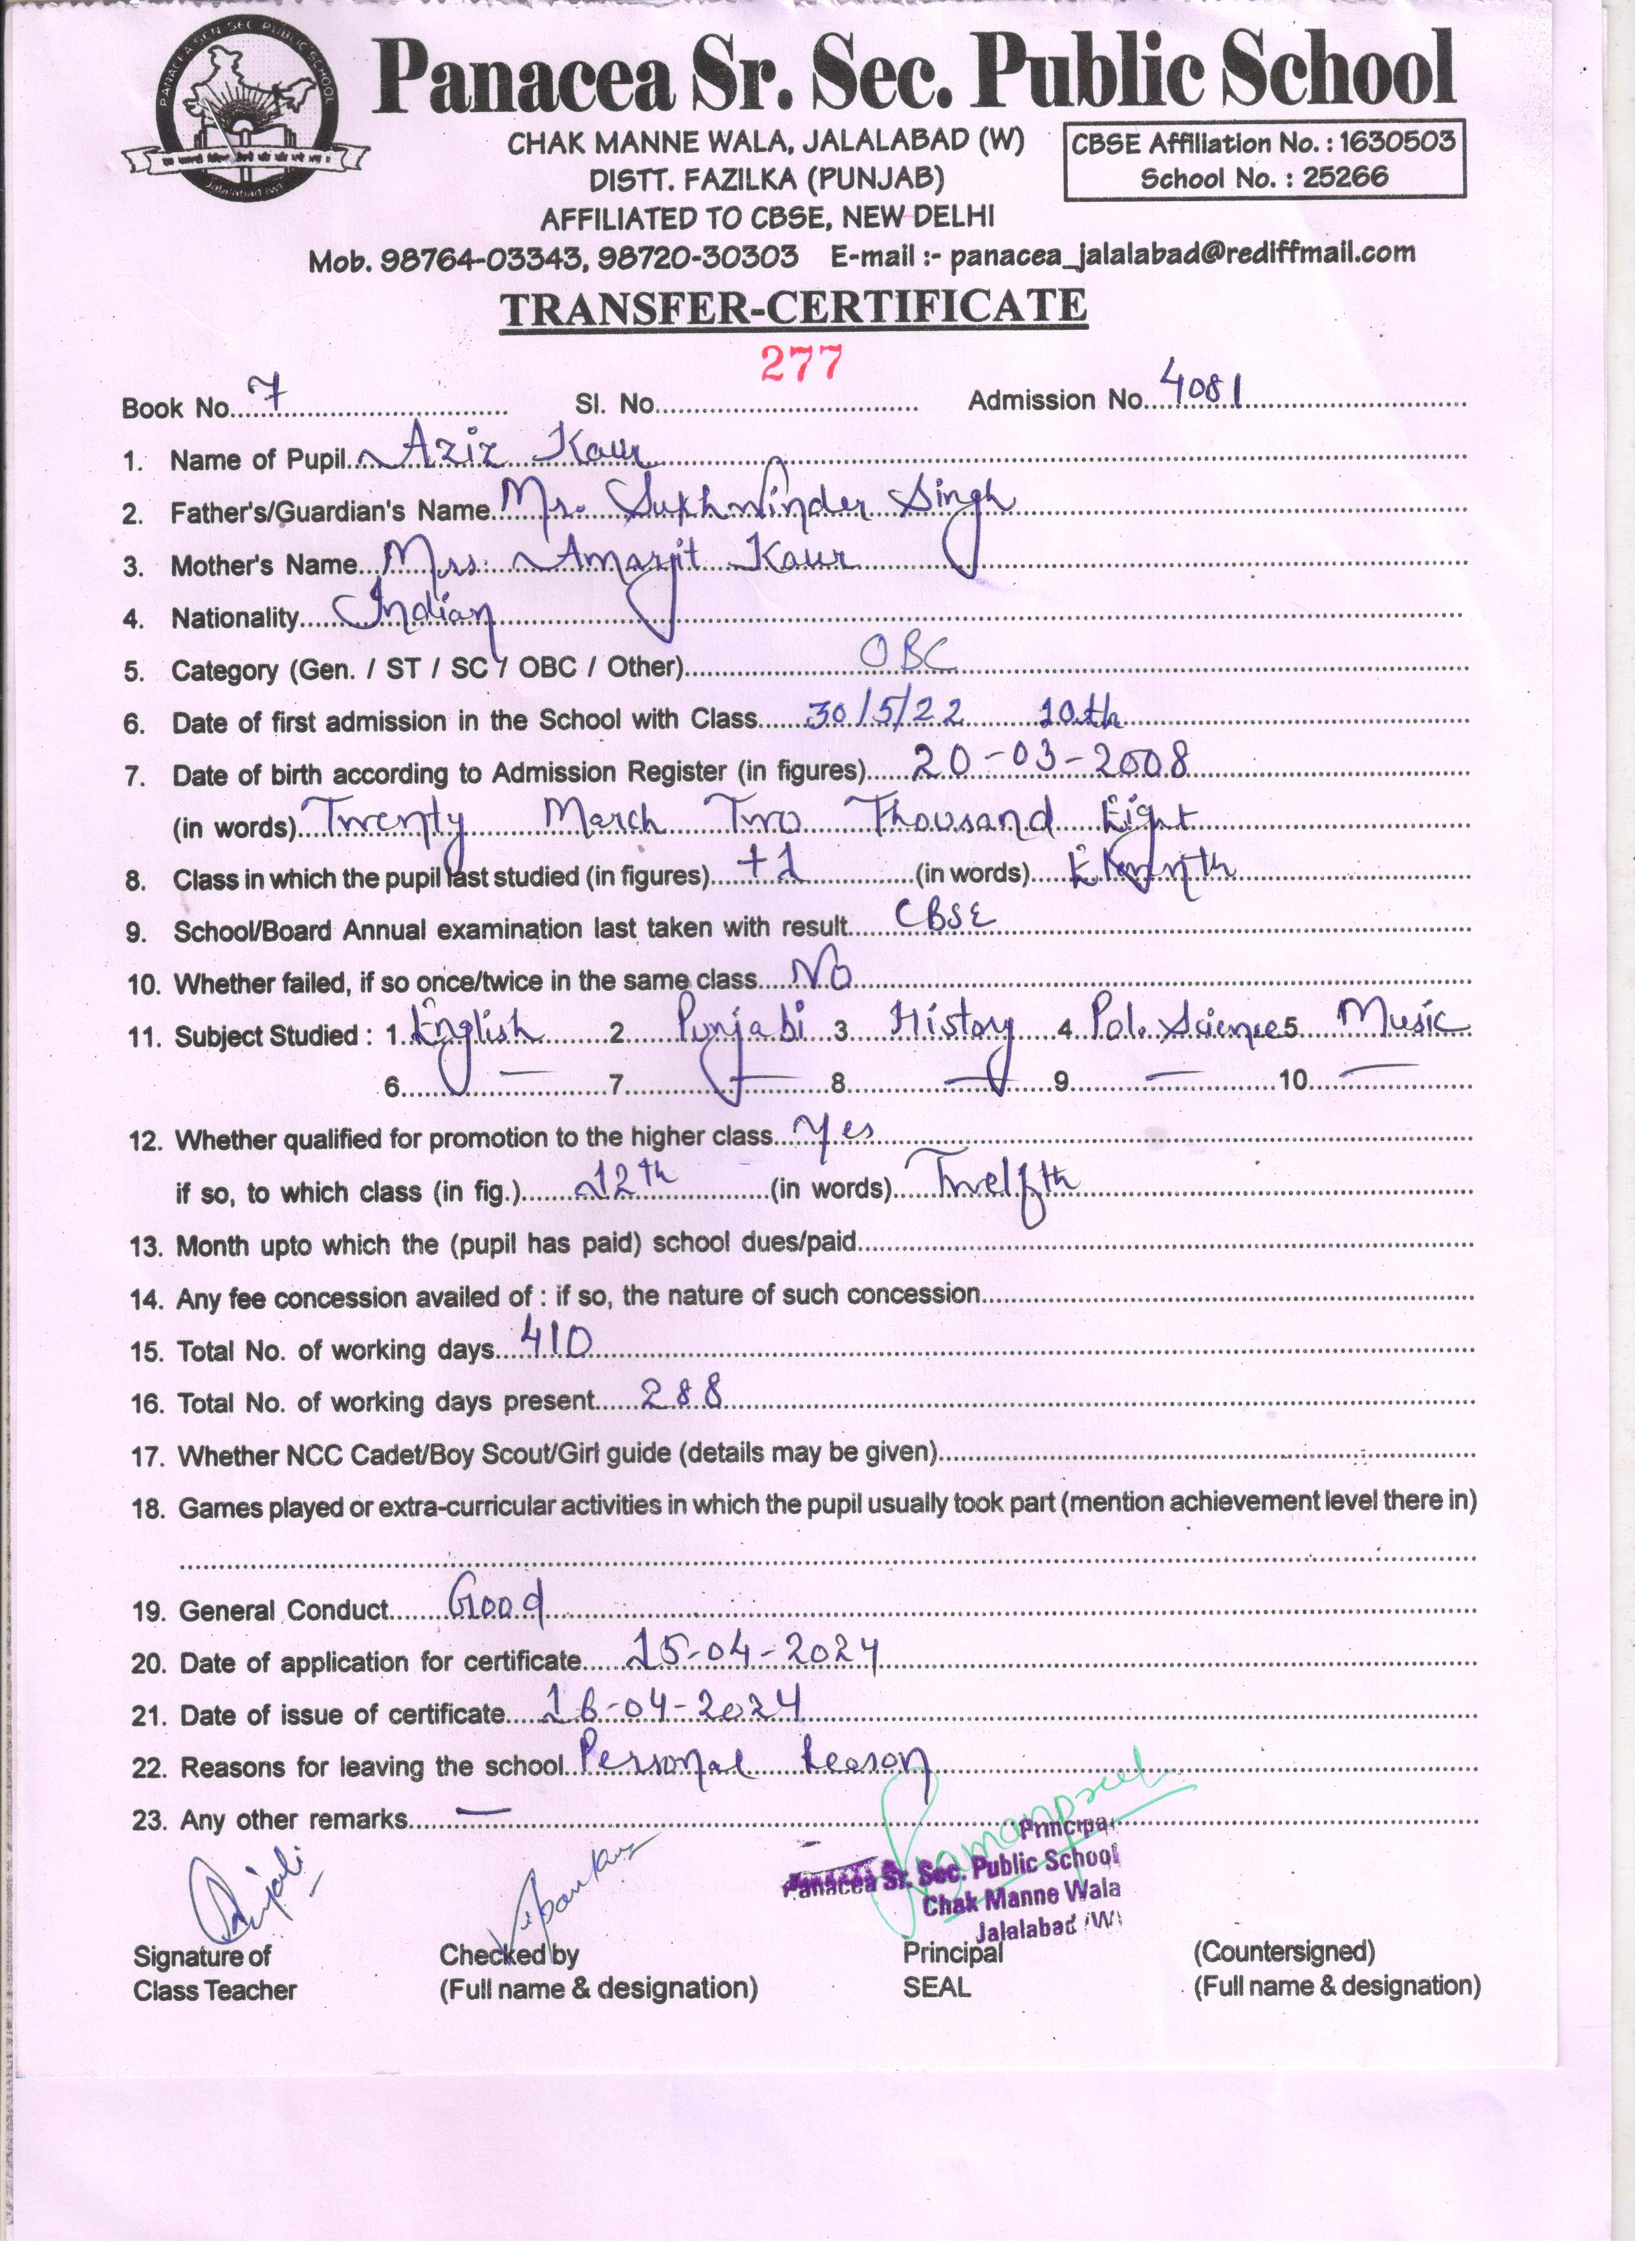 PANACEA SCN. SEC. PUBLIC SCHOOL
Jalalabad (W)
Panacea Sr. Sec. Public School
CHAK MANNE WALA, JALALABAD (W)
DISTT. FAZILKA (PUNJAB)
AFFILIATED TO CBSE, NEW DELHI
CBSE Affiliation No. : 1630503
School No. : 25266
Mob. 98764-03343, 98720-30303 E-mail :- panacea_jalalabad@rediffmail.com
TRANSFER-CERTIFICATE
277
Book No. 7 Sl. No. Admission No. 4081
1. Name of Pupil Aziz Kaur
2. Father's/Guardian's Name Mr. Sukhwinder Singh
3. Mother's Name Mrs. Amarjit Kaur
4. Nationality Indian
5. Category (Gen. / ST / SC / OBC / Other) OBC
6. Date of first admission in the School with Class 30/5/22 10th
7. Date of birth according to Admission Register (in figures) 20-03-2008
(in words) Twenty March Two Thousand Eight
8. Class in which the pupil last studied (in figures) +1 (in words)
9. School/Board Annual examination last taken with result CBSE
10. Whether failed, if so once/twice in the same class No
11. Subject Studied : 1. English 2 Punjabi 3 History 4 Pol. Science 5 Music
6 — 7 — 8 — 9 — 10 —
12. Whether qualified for promotion to the higher class Yes
if so, to which class (in fig.) 12th (in words) Twelfth
13. Month upto which the (pupil has paid) school dues/paid
14. Any fee concession availed of : if so, the nature of such concession
15. Total No. of working days 410
16. Total No. of working days present 288
17. Whether NCC Cadet/Boy Scout/Girl guide (details may be given)
18. Games played or extra-curricular activities in which the pupil usually took part (mention achievement level there in)
19. General Conduct Good
20. Date of application for certificate 15-04-2024
21. Date of issue of certificate 16-04-2024
22. Reasons for leaving the school Personal Reason
23. Any other remarks —
Principal
Panacea Sr. Sec. Public School
Chak Manne Wala
Jalalabad (W)
Signature of Checked by Principal (Countersigned)
Class Teacher (Full name & designation) SEAL (Full name & designation)